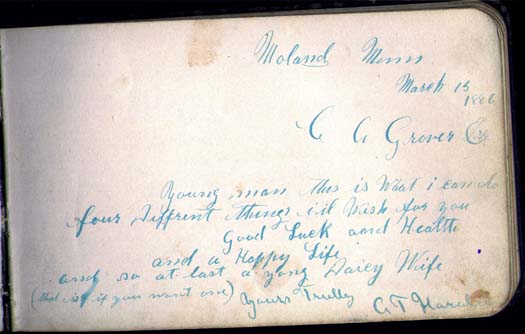 Moland Minn
March 15
1886
C A Grover Esq
Young man this is What i can do
four Diffrent things i'd Wish for you
Good Luck and Health
and a Happy Life
and so at last a yong Dairy Wife
(that is if you want one)
Yours Trully
A T